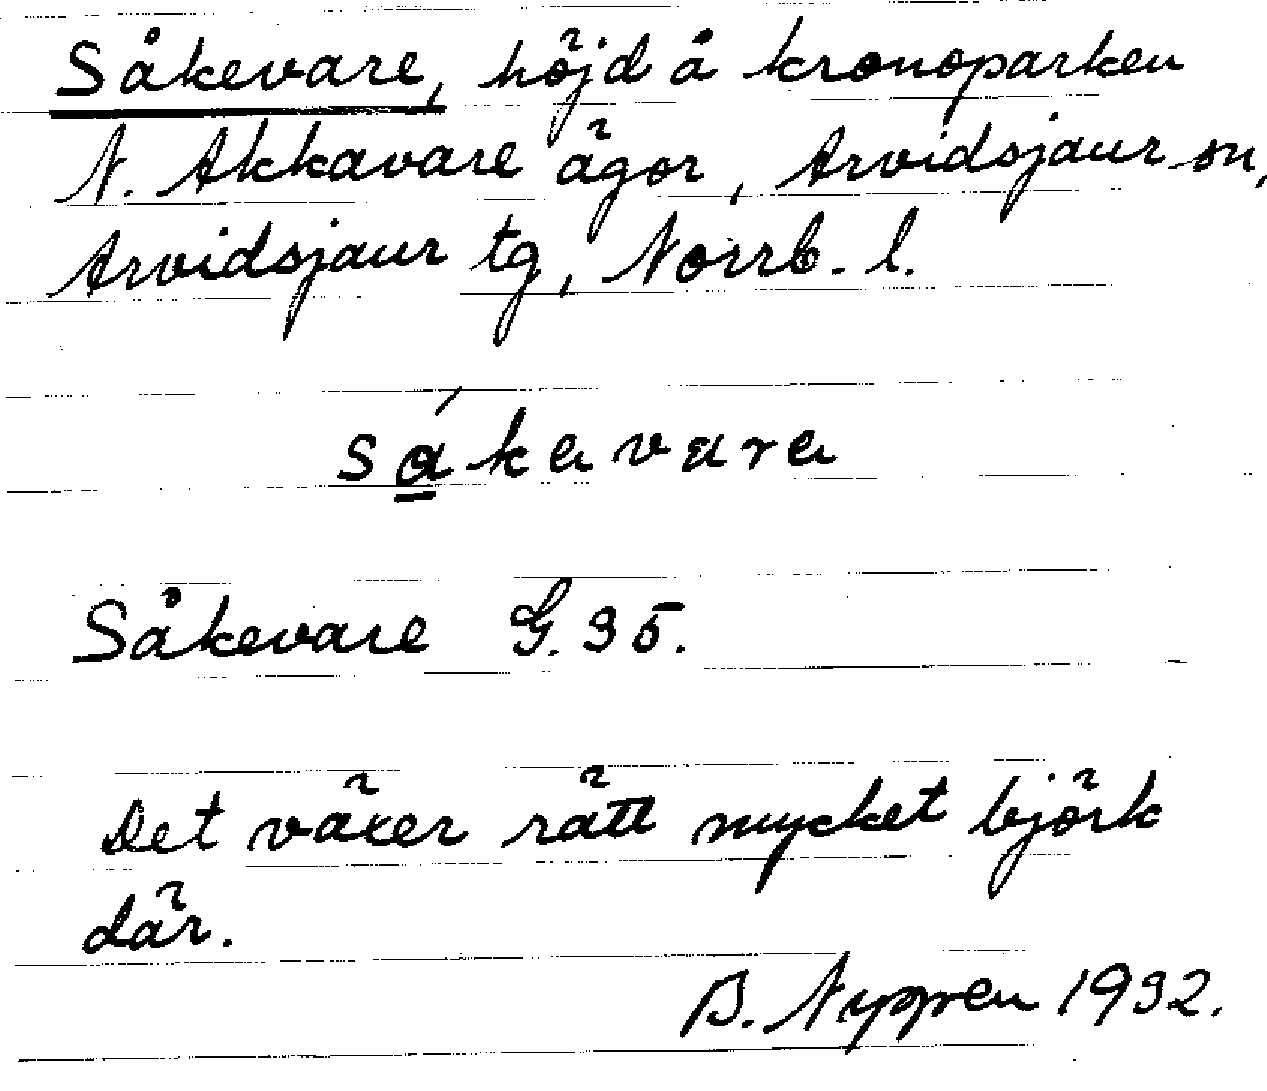 Såkevare, höjd å kronoparken
N. Akkavare ägor, Arvidsjaur sn,
Arvidsjaur tg, Norrb. l.
Såkevare G. 35.
Det växer rätt mycket björk
där.
B. 1932.